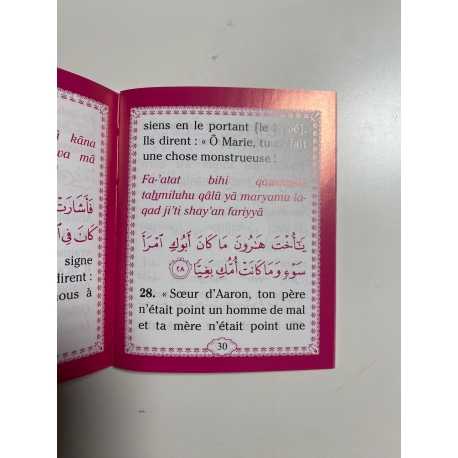 ā kāna
wa mā
فَأَشَارَتْ
كَانَ فِي ٱ
signe
dirent :
ous à
siens en le portant [le bébé].
Ils dirent : « Ô Marie, tu as fait
une chose monstrueuse !
Fa-'atat bihi qawmahā
taḥmiluhu qālū yā maryamu la-
qad ji'ti shay'an fariyyā
يَـٰٓأُخْتَ هَـٰرُونَ مَا كَانَ أَبُوكِ ٱمْرَأَ
سَوْءٍ وَمَا كَانَتْ أُمُّكِ بَغِيًّا ٢٨
28. « Sœur d'Aaron, ton père
n'était point un homme de mal
et ta mère n'était point une
30